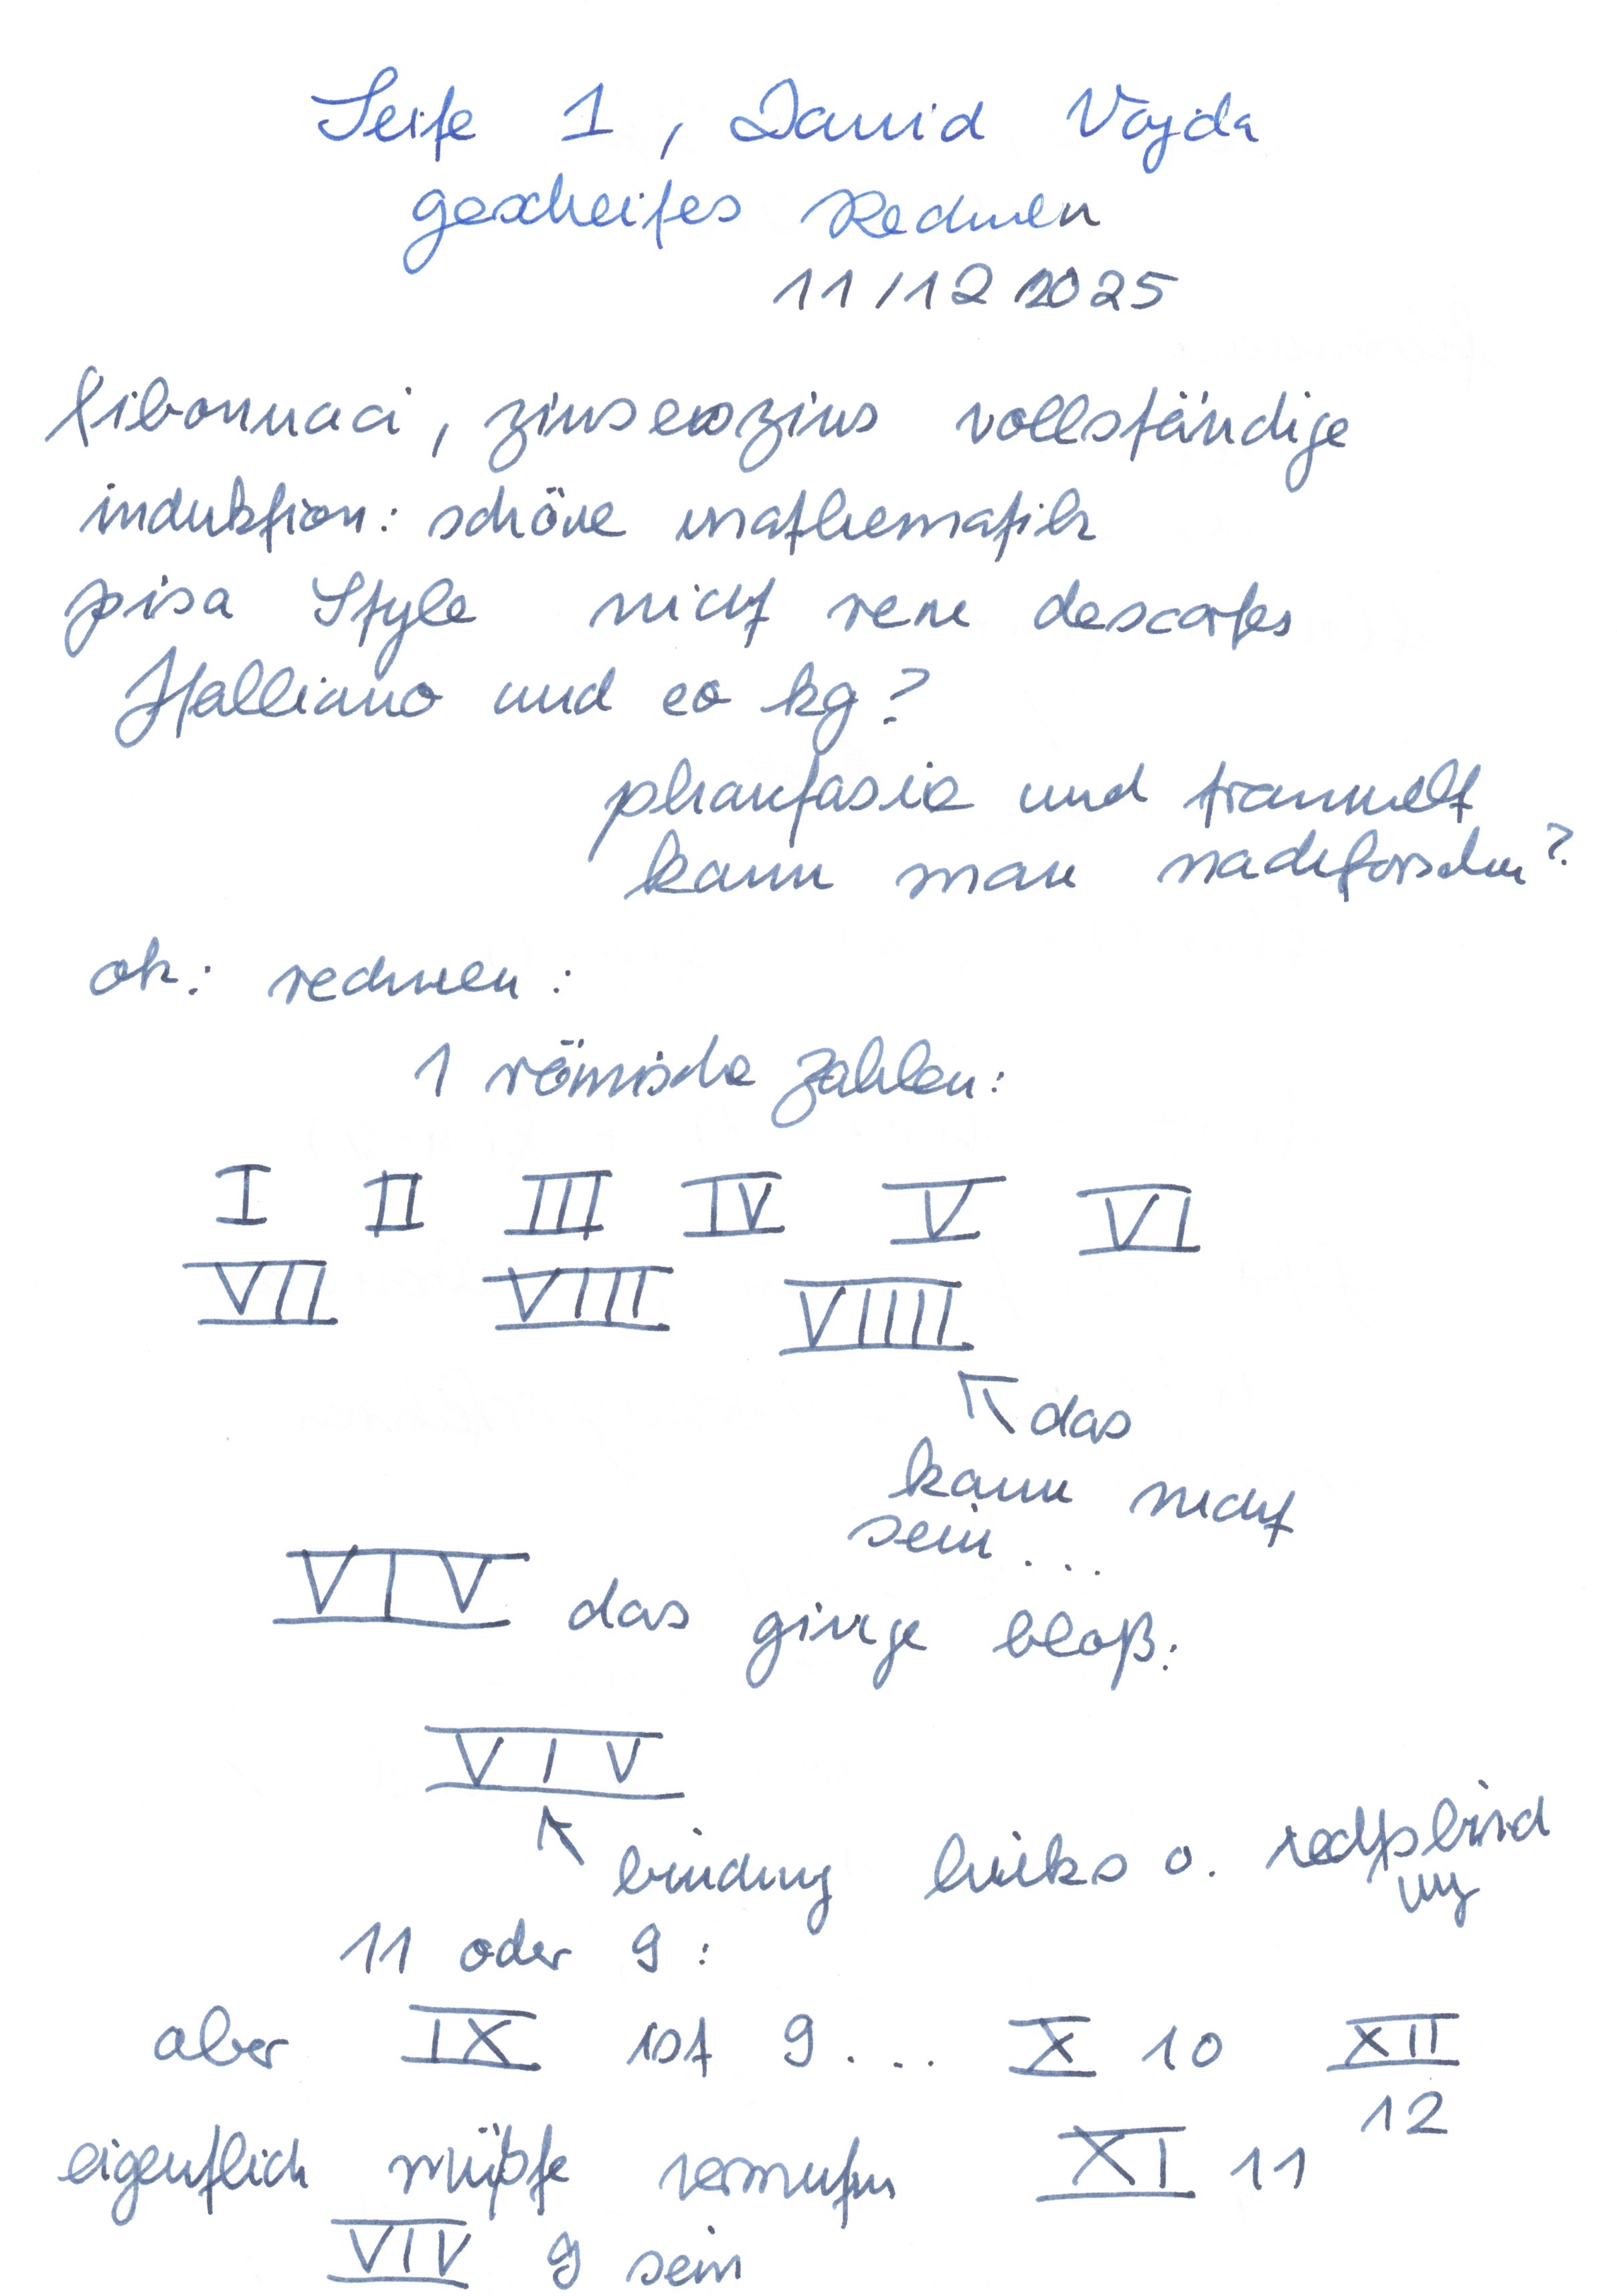 Seite 1, David Vajda
gescheites Rechnen
11/12 2025
fibonnaci, zinseszins vollständige
induktion: schöne mathematik
pisa Style nicht rene descartes
Italliano und co kg?
phantasie und traumwelt
kann man nachforschen?
ok: rechnen:
1 römische Zahlen:
I II III IV V VI
VII VIII VIIII
das
kann nicht
sein ...
VIV das ginge bloß:
VIV
bindung links o. rechtsbind
ung
11 oder 9:
aber IX ist 9 ... X 10 XII
12
eigentlich müßte XI 11
VIV 9 sein